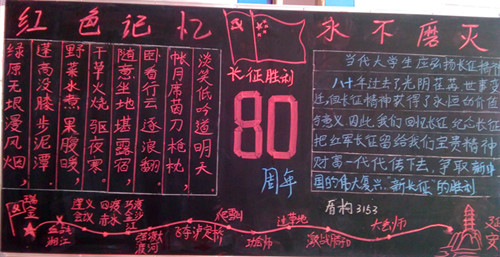 红色记忆 永不磨灭
淡笑低吟道明天
帐月席茵刀枪枕
卧看行云逐浪翻
随意坐地堪露宿
干草火烧驱夜寒
野菜水煮果腹暖
蓬高没膝步泥潭
绿原无垠漫风烟
长征胜利
80
周年
当代大学生应弘扬长征精神
八十年过去了,光阴荏苒,世事变
迁,但长征精神获得了永恒的价值
与意义。因此,我们回忆长征,纪念长征
把红军长征留给我们宝贵精神
对高一代代传下去,争取新中
国的伟大复兴,新长征的胜利
盾构3153
瑞金
血战湘江
遵义会议
四渡赤水
巧渡金沙江
强渡大渡河
飞夺泸定桥
爬雪山
过草地
激战腊子口
大会师
延安